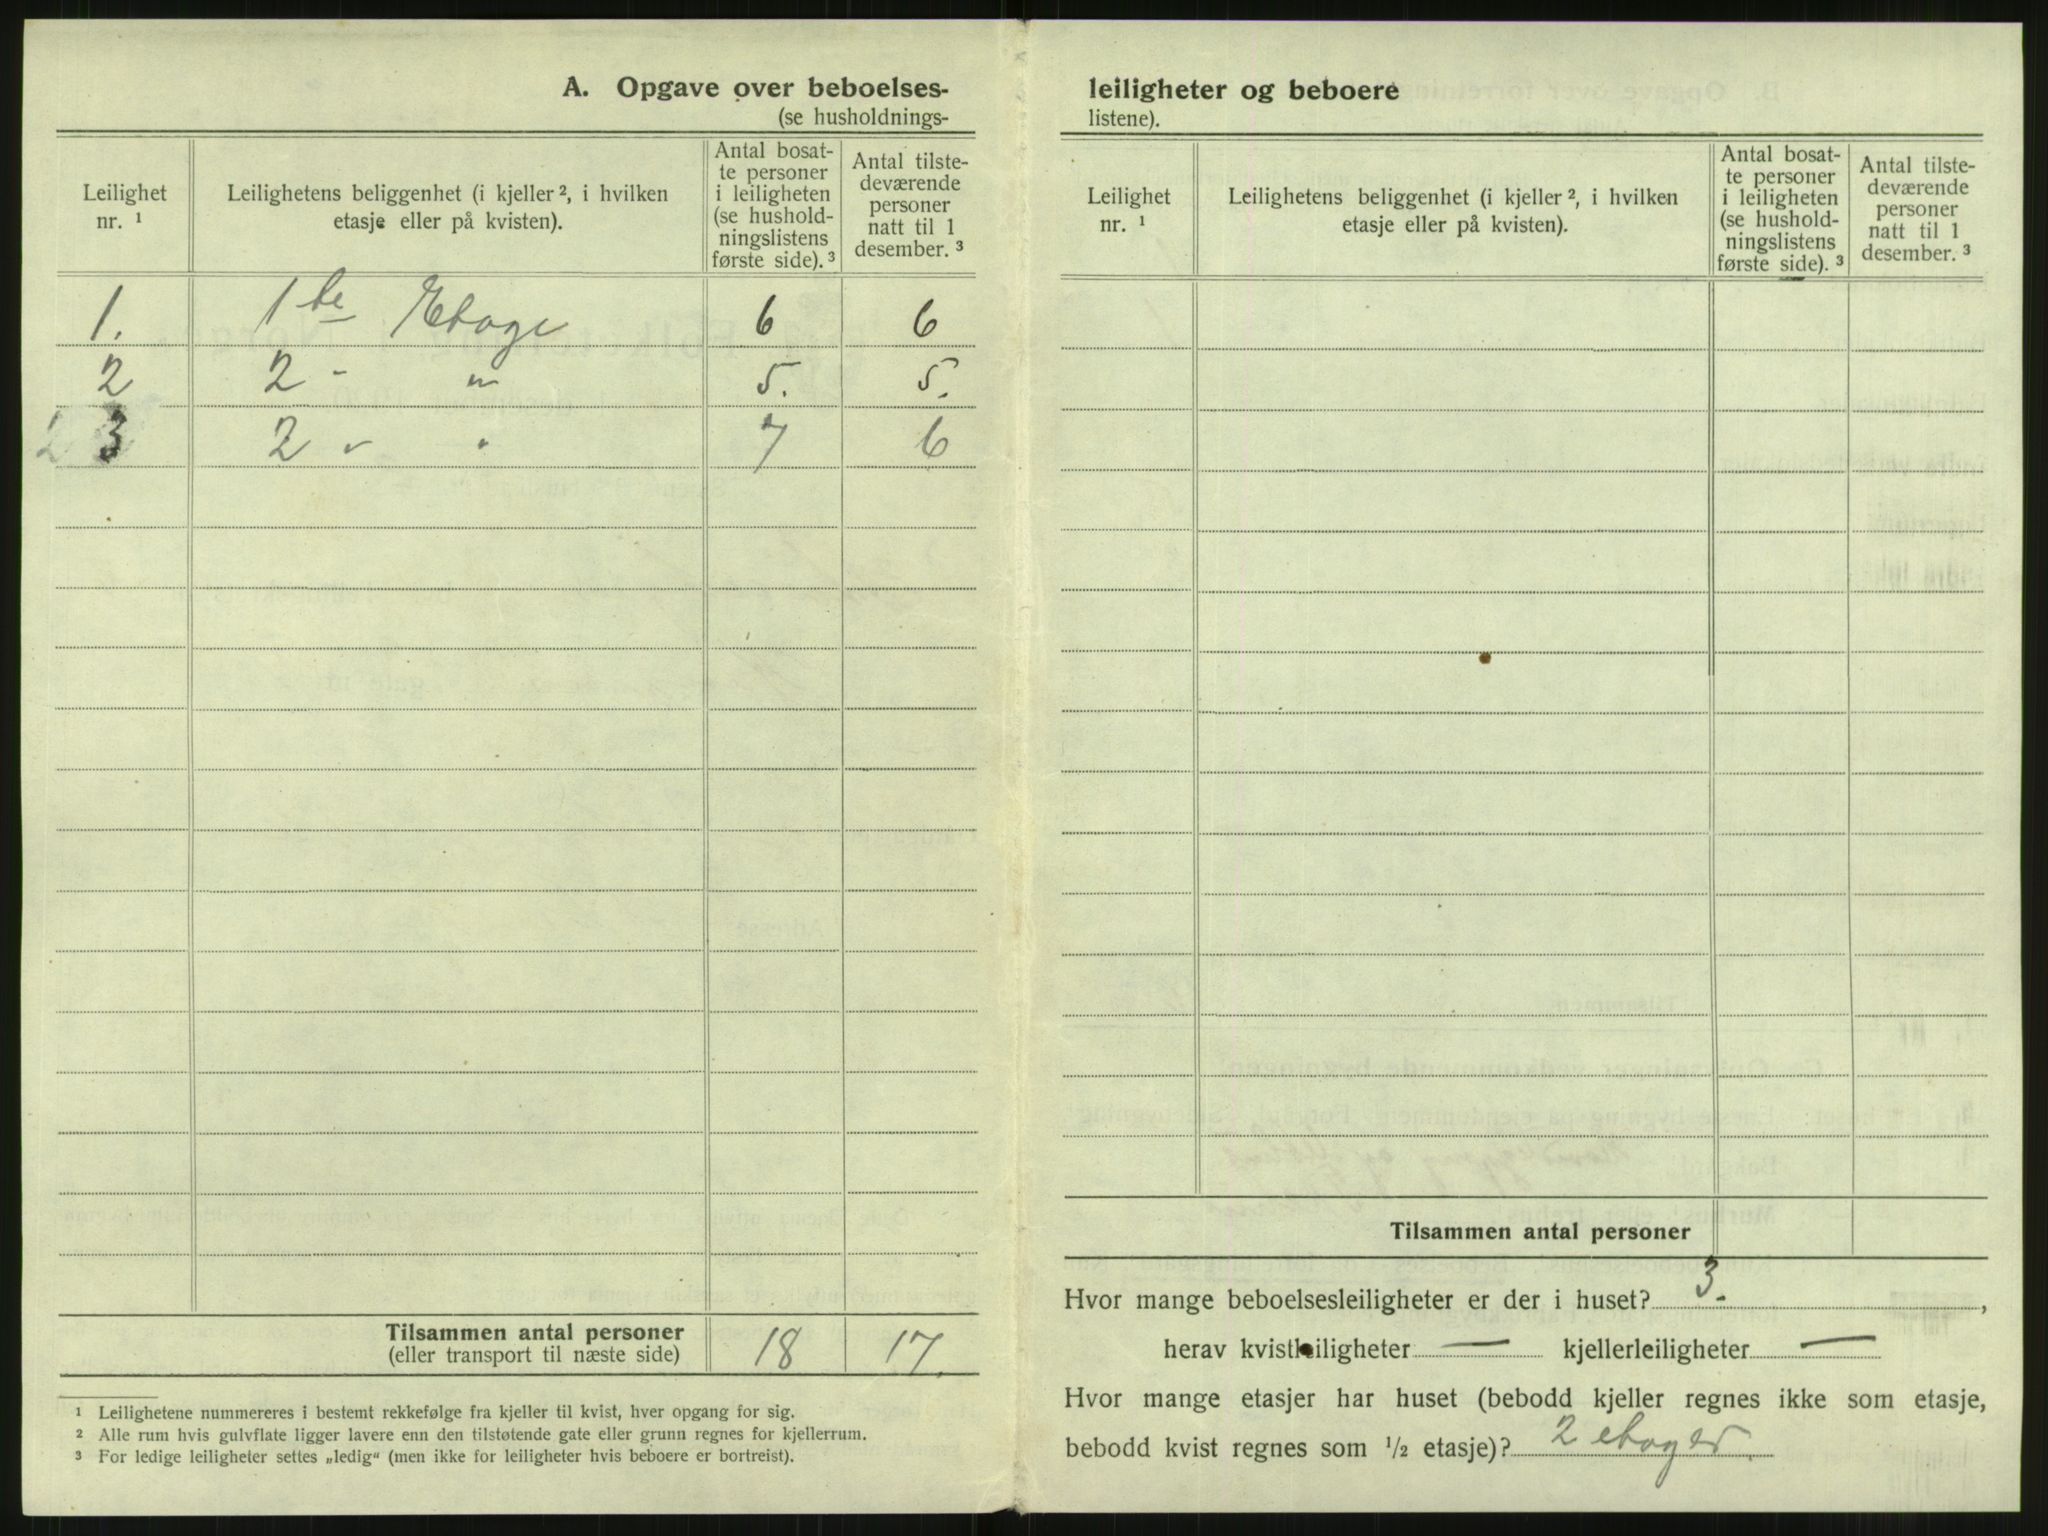 A. Opgave over beboelses-
(se husholdnings-
Leilighet
nr. ¹
Leilighetens beliggenhet (i kjeller ², i hvilken
etasje eller på kvisten).
Antal bosat-
te personer
i leiligheten
(se hushold-
ningslistens
første side). ³
Antal tilste-
deværende
personer
natt til 1
desember. ³
1. 1ste Etage 6 6
2 2 - " 5. 5.
3 2 - " 7 6
Tilsammen antal personer
(eller transport til næste side)
18 17.
¹ Leilighetene nummereres i bestemt rekkefølge fra kjeller til kvist, hver opgang for sig.
² Alle rum hvis gulvflate ligger lavere enn den tilstøtende gate eller grunn regnes for kjellerrum.
³ For ledige leiligheter settes „ledig" (men ikke for leiligheter hvis beboere er bortreist).
leiligheter og beboere
listene).
Leilighet
nr. ¹
Leilighetens beliggenhet (i kjeller ², i hvilken
etasje eller på kvisten).
Antal bosat-
te personer
i leiligheten
(se hushold-
ningslistens
første side). ³
Antal tilste-
deværende
personer
natt til 1
desember. ³
Tilsammen antal personer
Hvor mange beboelsesleiligheter er der i huset? 3. ,
herav kvistleiligheter — kjellerleiligheter —
Hvor mange etasjer har huset (bebodd kjeller regnes ikke som etasje,
bebodd kvist regnes som ½ etasje)? 2 etager